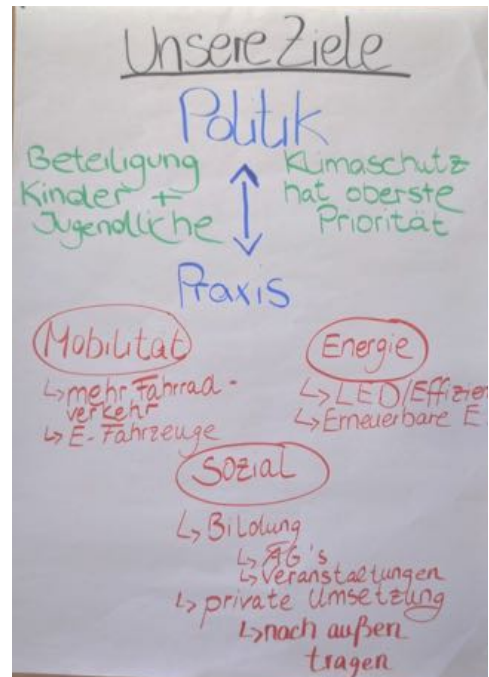 Unsere Ziele
Politik
Beteiligung
Kinder +
Jugendliche
Klimaschutz
hat oberste
Priorität
Praxis
Mobilität
↳ mehr Fahrrad-
verkehr
↳ E-Fahrzeuge
Energie
↳ LED/Effizien
↳ Erneuerbare E.
Sozial
↳ Bildung
↳ AG's
↳ Veranstaltungen
↳ private Umsetzung
↳ nach außen
tragen